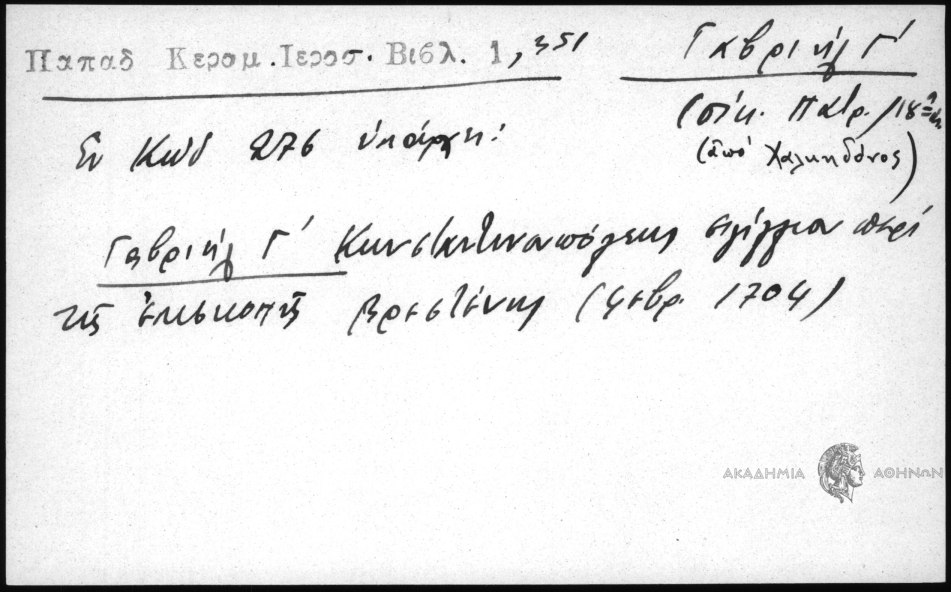 Παπαδ Κεραμ. Ιεροσ. Βιβλ. 1, 351
Γαβριήλ Γ'
(οἰκ. Πατρ. 18
(ἀπό Χαλκηδόνος)
Ἐν Κώδ 276 ὑπάρχει:
Γαβριήλ Γ' Κωνσταντινουπόλεως σιγίλλιον περί
τῆς ἐπισκοπῆς Βρεστένης (Φεβρ. 1704)
ΑΚΑΔΗΜΙΑ ΑΘΗΝΩΝ